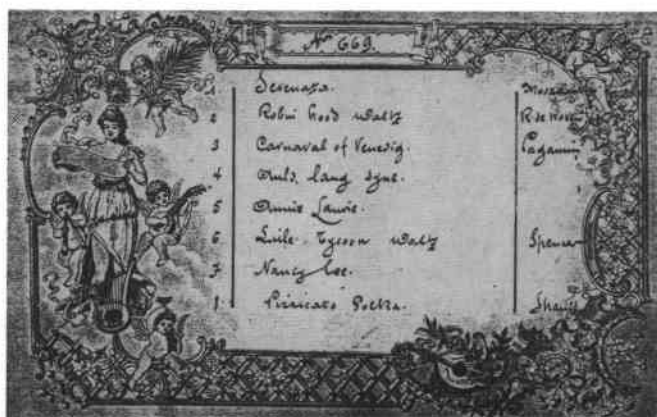 No 669.
1 Serenata. Moszkowski
2 Robin hood Waltz R de Koven
3 Carnaval of Venedig. Paganini
4 Auld, lang syne.
5 Annie Laurie.
6 Little Tycoon Waltz Spenser
7 Nancy Lee.
Pizzicato Polka. Strauss